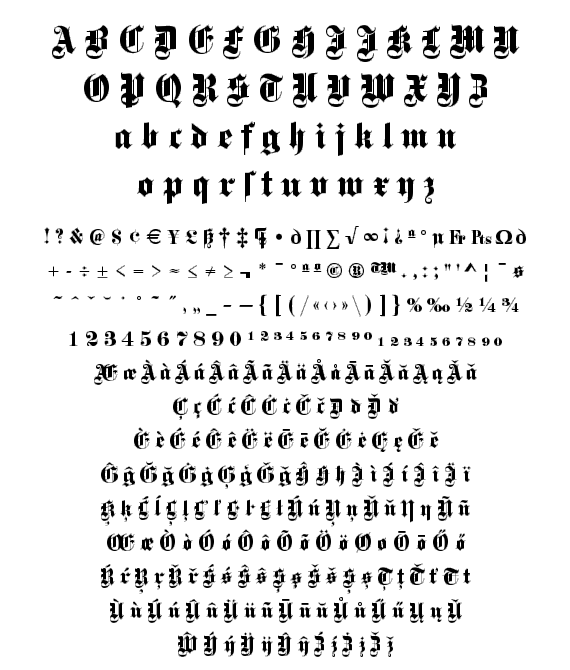 A B C D E F G H I J K L M N
O P Q R S T U V W X Y Z
a b c d e f g h i j k l m n
o p q r ſ t u v w x y z
! ? & @ § ¢ € ¥ £ ß † ‡ ¶ • ∂ ∏ ∑ √ ∞ ¡ ¿ ª ° µ Fr Pts Ω ∂
+ - ÷ ± < = > ≈ ≤ ≠ ≥ ¬ * ¯ ° ª º © ® ™ . , : ; " ' ^ ¦
{ [ ( / « ‹ › » \ ) ] } % ‰ ½ ¼ ¾
1 2 3 4 5 6 7 8 9 0 1 2 3 4 5 6 7 8 9 0 1 2 3 4 5 6 7 8 9 0
Æ æ À à Á á Â â Ã ã Ä ä Å å Ā ā Ă ă Ą ą Ǎ ǎ
Ç ç Ć ć Ĉ Ċ ċ Č č D ð Ď ď
È è É é Ê ê Ë ë Ē ē Ĕ Ė ė Ę ę Ě ě
Ĝ ĝ Ğ ğ Ġ ġ Ģ ģ Ǧ ǧ Ĥ ħ Ì ì Í í Î î Ï ï
Ķ ķ Ĺ ĺ Ļ ļ Ľ ľ Ŀ ŀ Ł ł Ń ń Ņ ņ Ň ň Ŋ ŋ Ñ ñ
Œ œ Ò ò Ó ó Ô ô Õ õ Ö ö Ø ø Ō ō Ő ő
Ŕ ŕ Ŗ ŗ Ř ř Ś ś Ŝ ŝ Ş ş Š š Ș ș Ţ ţ Ť ť Ŧ ŧ
Ù ù Ú ú Û û Ü ü ñ Ū ū ŭ Ů ů Ű ű Ų ų Ǔ
Ŵ Ý ý Ÿ ÿ Ŷ ŷ Ź ź Ż ż Ž ž